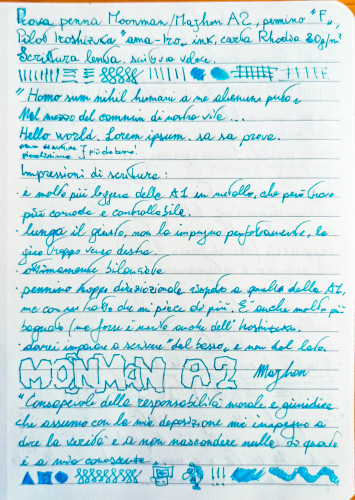 Prova penna Moonman/Majhon A2, pennino "F",
Pilot Iroshizuku "ama-iro" ink, carta Rhodia 80g/m²
Scrittura lenta, scrittura veloce.
"Homo sum nihil humani a me alienum puto"
Nel mezzo del cammin di nostra vita...
Hello world. Lorem ipsum. sa sa prova.
piccolissimo } più da bene!
Impressioni di scrittura:
· è molto più leggera della A1 in metallo, che però trovo
più comoda e controllabile.
· lunga il giusto, non la impugno perfettamente, la
giro troppo verso destra.
· ottimamente bilanciata
· pennino troppo direzionale rispetto a quello della A1,
ma con un tratto che mi piace di più. È anche molto più
bagnato, ma forse è merito anche dell'Iroshizuku.
· dovrei imparare a scrivere "dal basso, e non dal lato.
MOONMAN A2 Majhon
"Consapevole della responsabilità morale e giuridica
che assumo con la mia deposizione mi impegno a
dire la verità e a non nascondere nulla di quanto
è a mia conoscenza